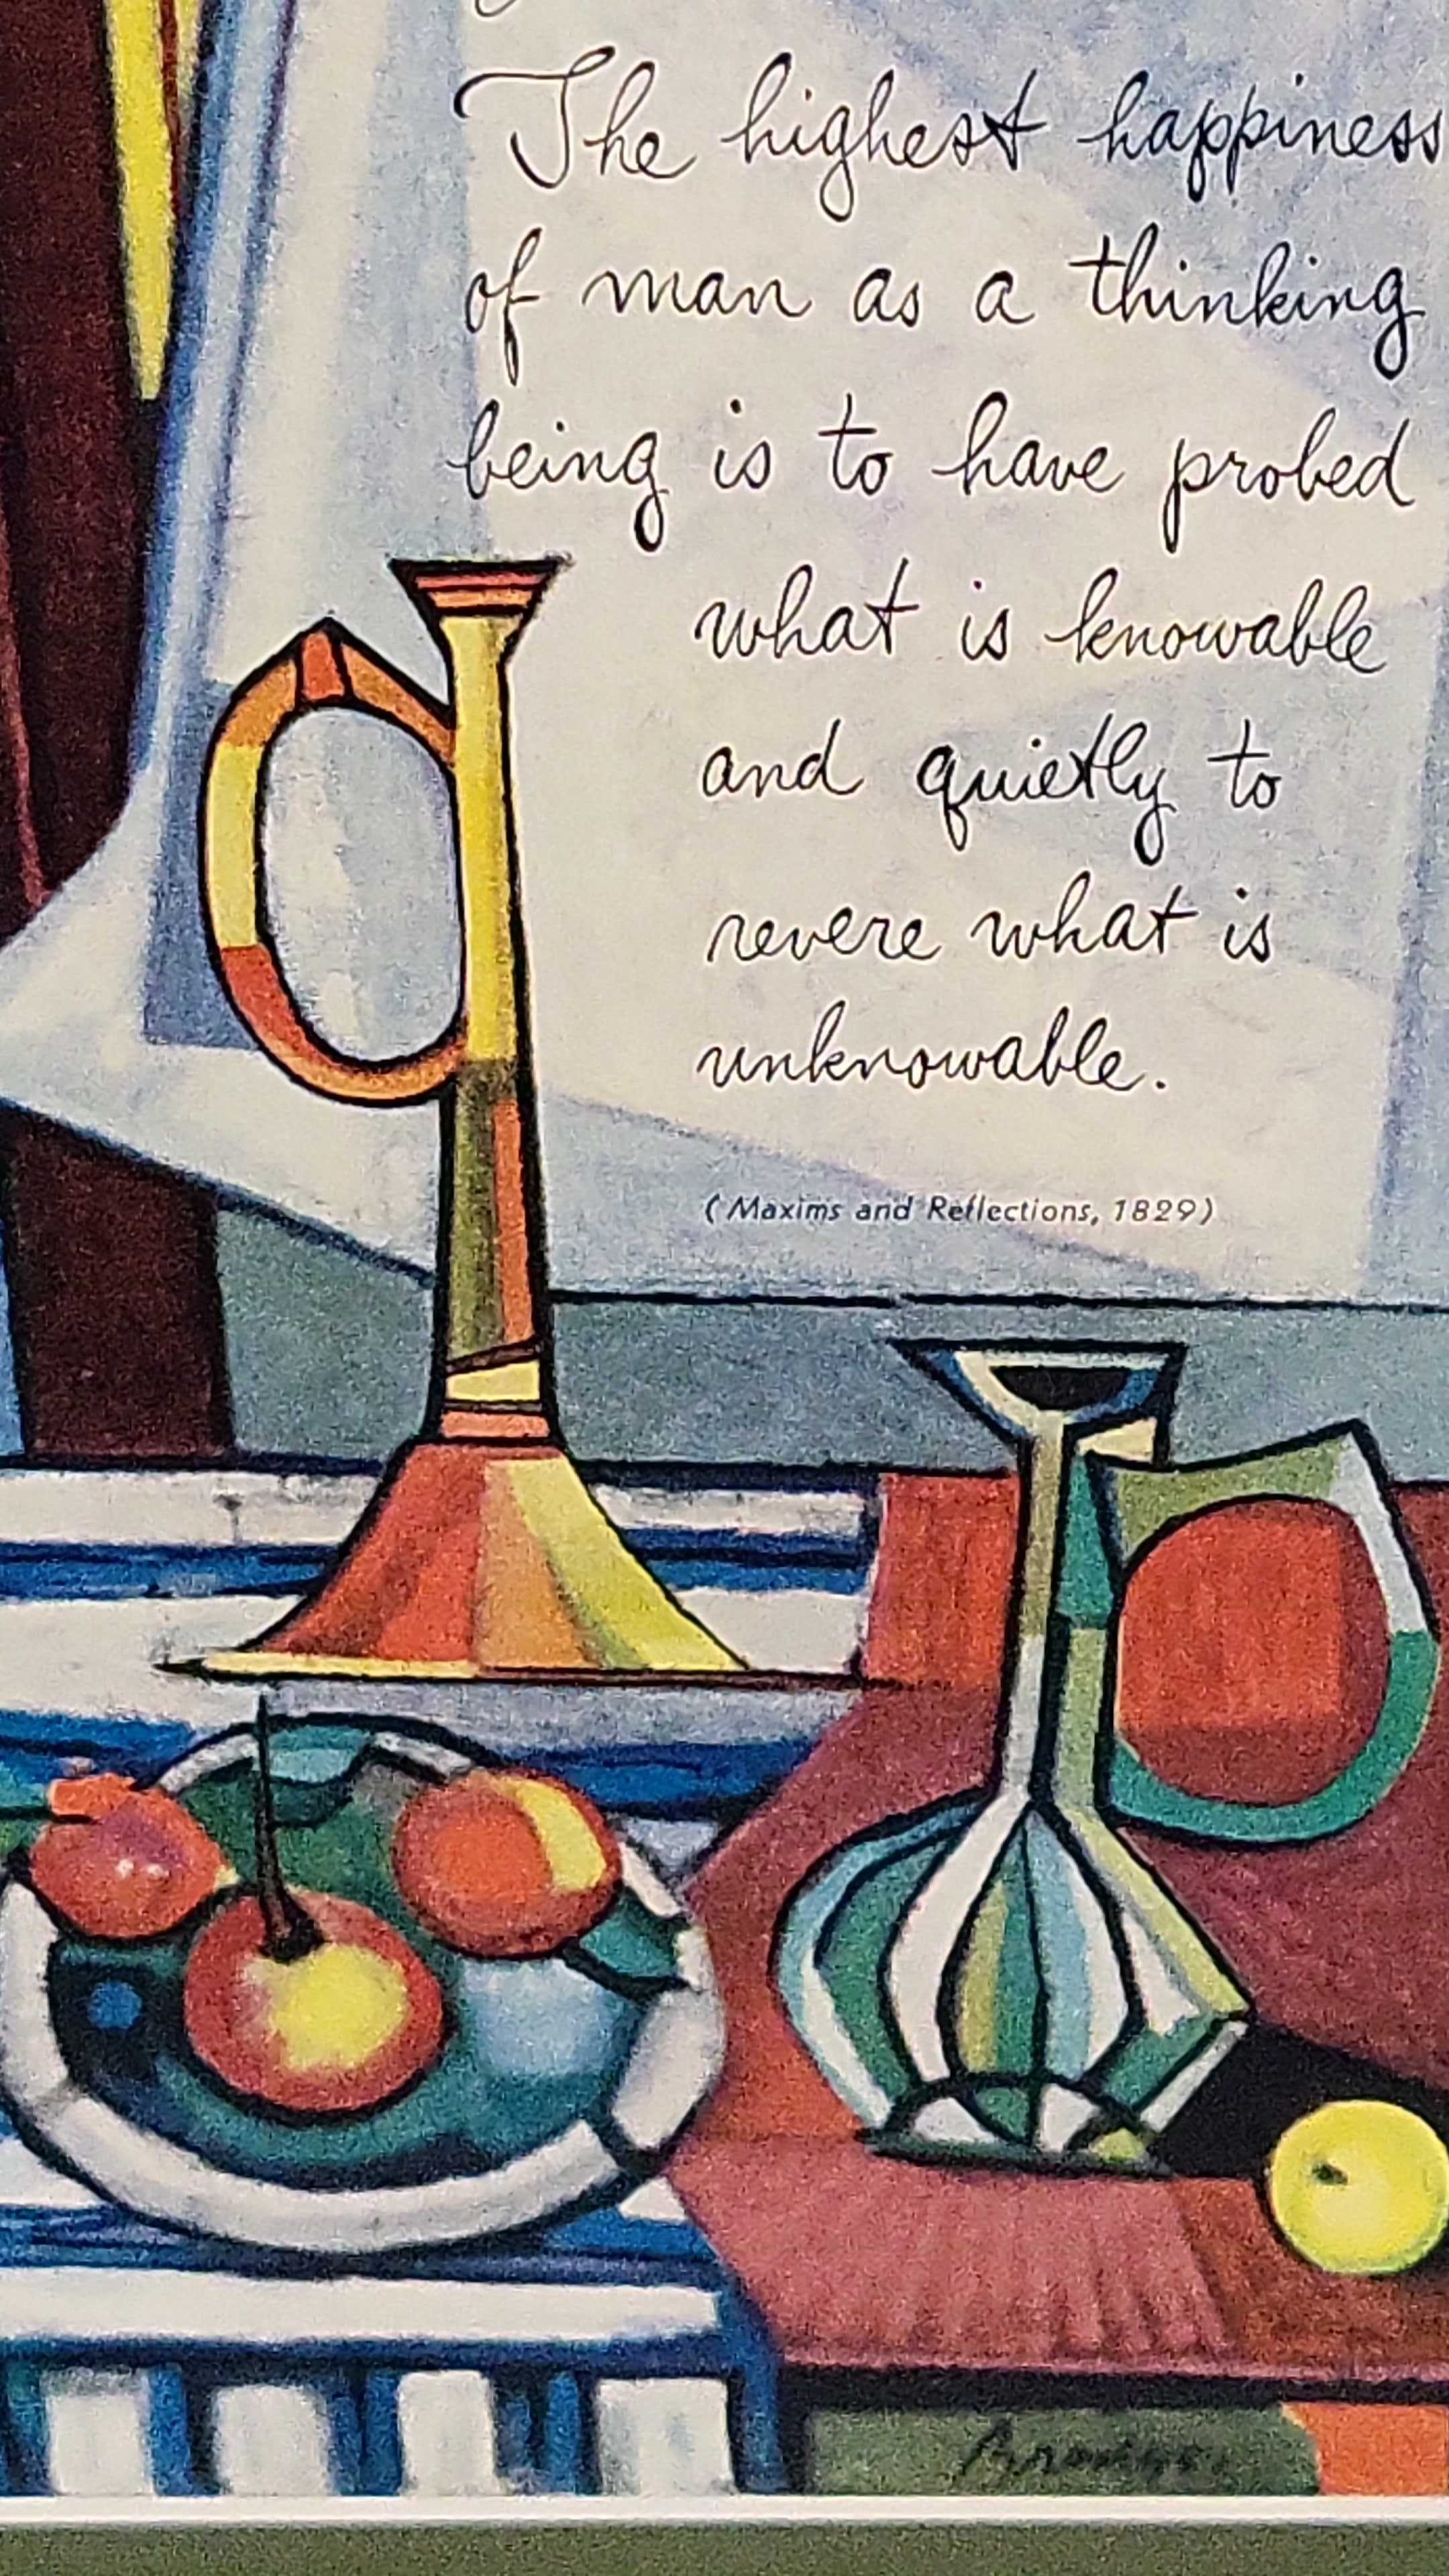 The highest happiness
of man as a thinking
being is to have probed
what is knowable
and quietly to
revere what is
unknowable.
(Maxims and Reflections, 1829)